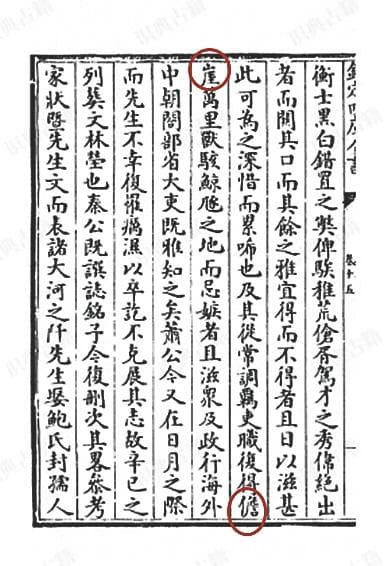 卷十五
衡士黑白錯置之獘俾駿雅荒傖胥駕才之秀偉絕出
者而關其口而其餘之雅宜得而不得者且日以滋甚
此可為之深惜而累唏也及其從常調羈吏職復得儋
崖萬里獸駭鯨之地而忌嫉者且滋衆及政行海外
中朝閣部省大吏既雅知之矣蕭公今又在日月之際
而先生不幸復罹癘濕以卒訖不克展其志故辛巳之
列葬文林塋也秦公既譔誌銘子今復刪次其畧叅考
家狀曁先生文而表諸大河之阡先生娶鮑氏封孺人
识典古籍